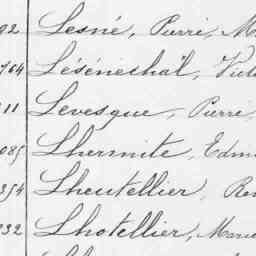 92 Lesné, Pierre, M
764 Lésénéchal, Vict
11 Levesque, Pierre,
085 Lhermite, Edm
354 Lheutellier, Ren
332 Lhotellier, Marie